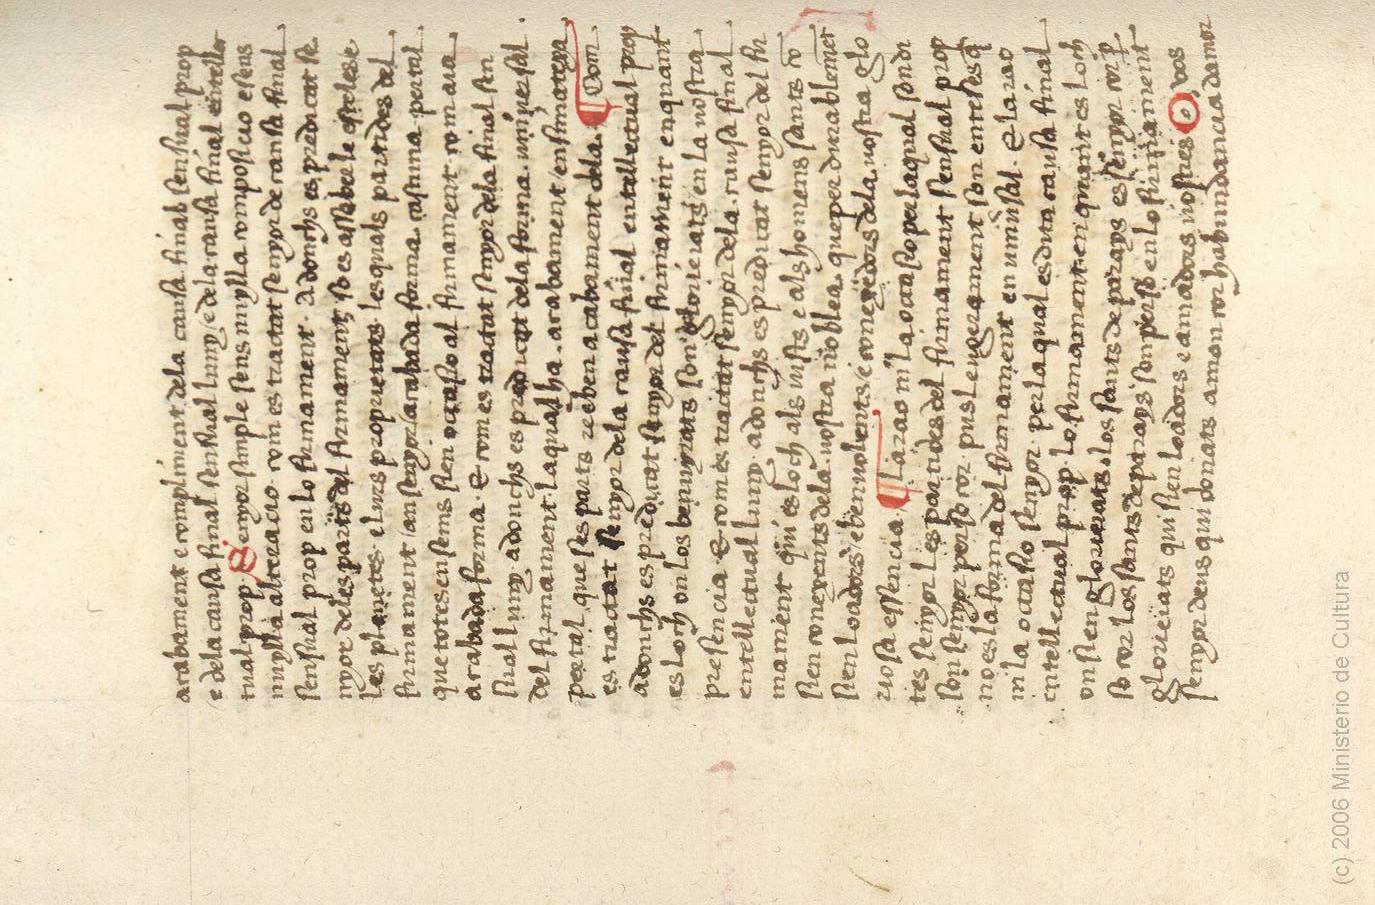 acabament e compliment dela causa final sensual prop
e dela causa final sensual luny e dela causa final entellec
tual prop. Senyor simple sens nuylla composicio e sens
nuylla alteracio com es tractat senyor de causa final
sensual prop en lo firmament. Adonchs es predicat se
nyor deles parts del firmament, so es assaber le esfelese
les planetes e lurs proprietats les quals partides del
firmament an senyor acabada forma. casuna per tal
que totes en sens sien occasio al firmament com aia
acabada forma. E com es tractat senyor dela final sen
sual luny adonchs es predicat dela forma universal
del firmament la qual ha acabament en si mateyxa
per tal que ses parts reeben acabament dela. Com
es tractat senyor dela causa final entellectual prop
adonchs es predicat senyor del firmament en quant
es loch on los benuyrats son glorieiats en la vostra
presencia. E com es tractat senyor dela causa final
entellectual luny adonchs es predicat senyor del fir
mament qui es loch als iusts e als homens sants co
sien conexents dela vostra noblea que perdurablement
sien loadors e benvolents e conexedors dela vostra glo
riosa essencia. La rao ni la occasio per la qual son di
tes senyor les partides del firmament sensual prop
son senyor per so cor pus leugerament son enteses q
no es la forma del firmament en universal. E la rao
ni la occasio senyor per la qual es dita causa final
entellectual prop lo firmament en quant es loch
on sien gloriejats los sants de parays es senyor
so cor los sants de parays son en lo firmament
glorieiats qui sien loadors e amadors vostres. O vos
senyor deus qui donats amon cor habundancia damor